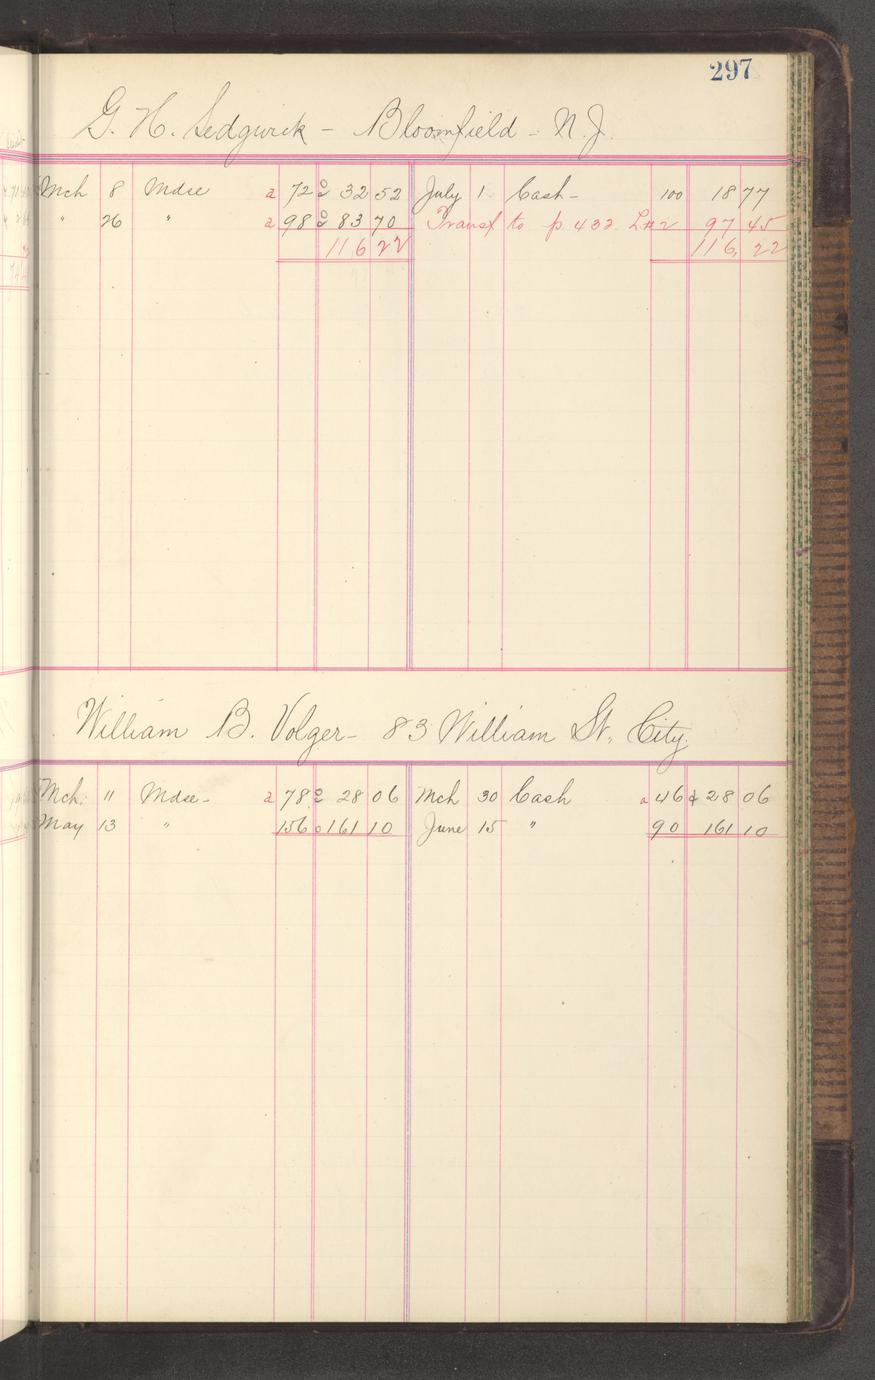 297
G. H. Sedgwick - Bloomfield - N.J.
Mch 8 Mdse a 72 32 52 July 1 Cash - 100 18 77
" 26 " a 98 83 70 Transf to p 432 L#2 97 45
116 22 116 22
William B. Volger - 83 William St. City
Mch. 11 Mdse - a 78 28 06 Mch 30 Cash a 46 28 06
May 13 " 156 161 10 June 15 " 90 161 10